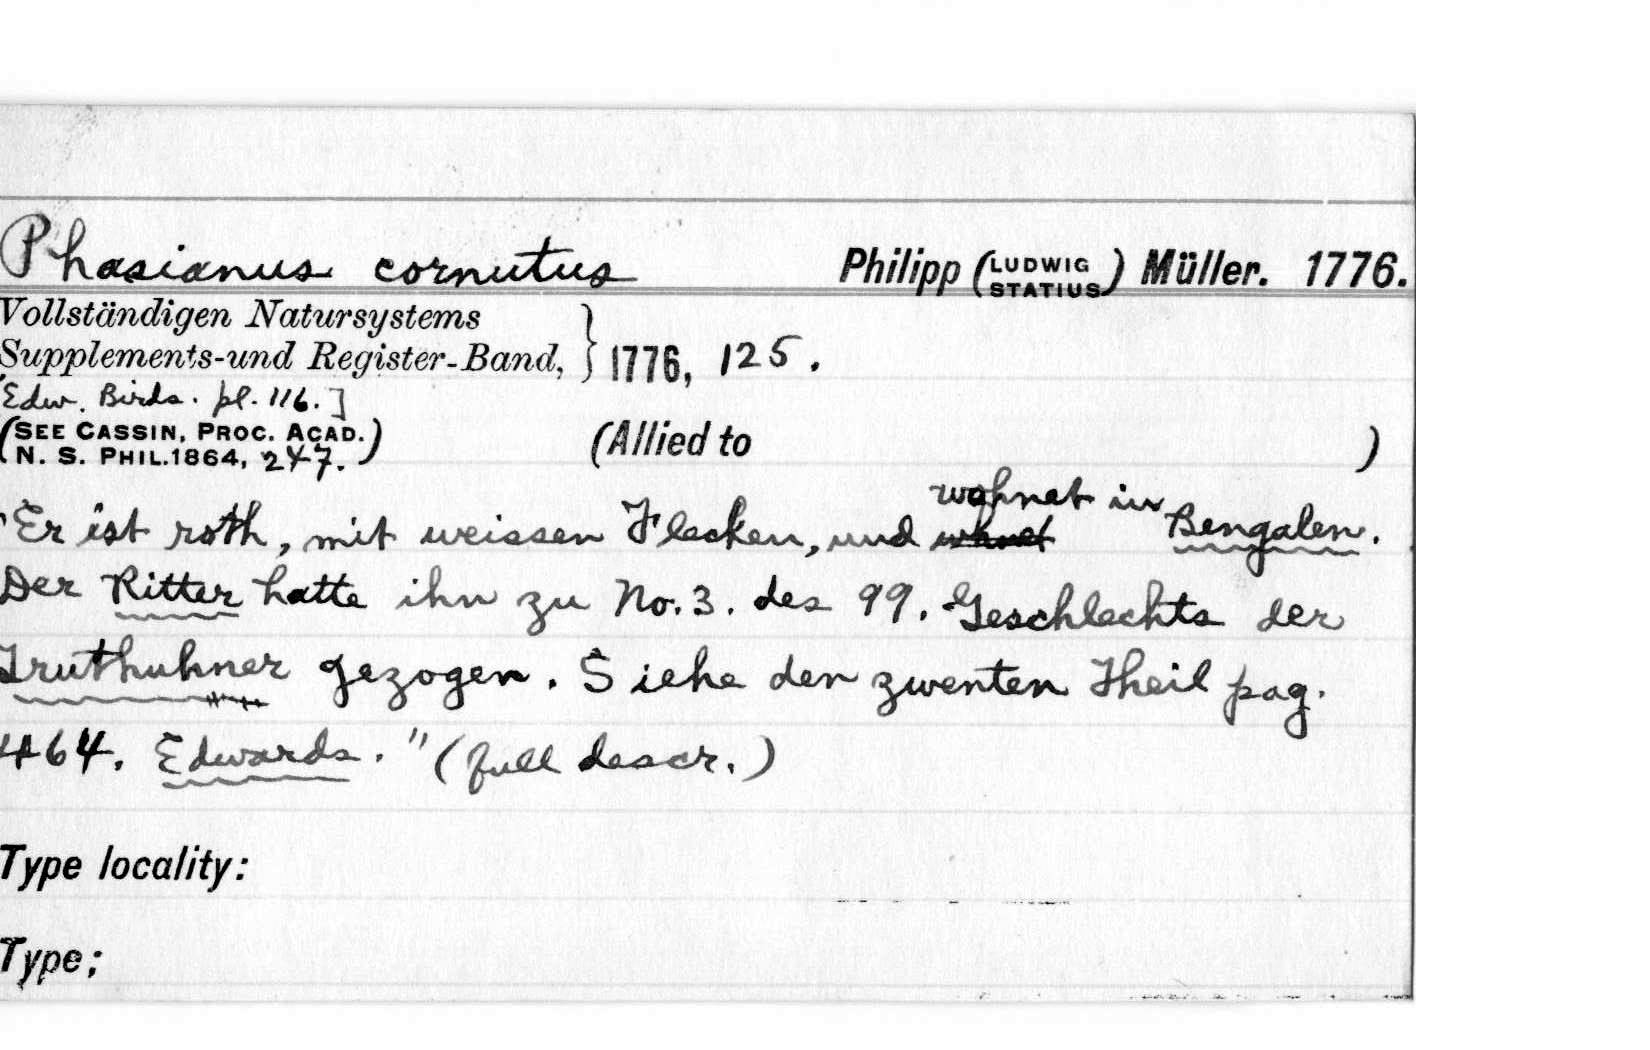 Phasianus cornutus Philipp (LUDWIG STATIUS) Müller. 1776.
Vollständigen Natursystems
Supplements-und Register-Band, } 1776, 125.
Edw. Birds. pl. 116.]
(SEE CASSIN, PROC. ACAD.
N. S. PHIL. 1864, 247.) (Allied to )
wohnet in
"Er ist roth, mit weissen Flecken, und whnet Bengalen.
Der Ritter hatte ihn zu No. 3. des 99. Geschlechts der
Truthuhner gezogen. Siehe den zwenten Theil pag.
464. Edwards." (full descr.)
Type locality:
Type;